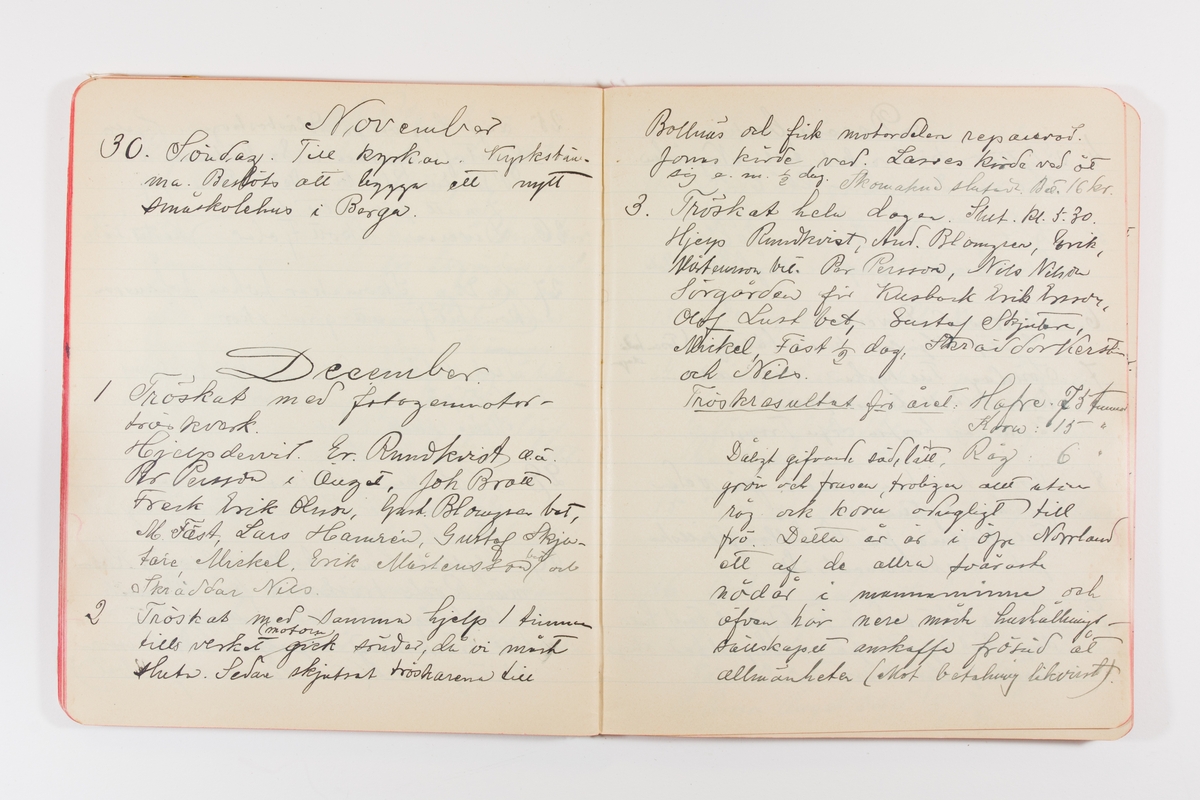 November
30. Söndag. Till kyrkan. Kyrkstäm-
ma. Beslöts att bygga ett nytt
småskolehus i Berga.
December.
1 Tröskat med fotogenmotor-
tröskverk.
Hjelp dervid. Er. Rundkvist d.ä.
Pr Persson i Änget, Joh Brott
Fresk Erik Olsson, Gust. Blomgren bet,
M. Fäst, Lars Hamrén, Gustaf Skju-
tare, Mickel, Erik Mårtensson bet och
Skräddar Nils.
2 Tröskat med samma hjelp 1 timme
tills verket (motorn) gick sönder, då vi måst
sluta. Sedan skjutsat tröskarena till
Bollnäs och fick motordelen reparerad.
Jonas körde ved. Lasses körde ved åt
sig e. m. ½ dag. Skomakrn slutade Bet. 16 kr.
3. Tröskat hela dagen. Slut. kl. 5.30.
Hjelp Rundkvist, And. Blomgren, Erik
Mårtensson bet. Per Persson, Nils Nilsson
Sörgården för Kusbock Erik Ersson,
Olof Lust bet, Gustaf Skjutare,
Mickel, Fäst ½ dag, Skräddar Kerst.
och Nils.
Tröskresultat för året: Hafre. 75 tunnor
Korn: 15 "
Dåligt gifvande säd, lätt, Råg: 6 "
grön och frusen, troligen allt utom
råg och korn odugligt till
frö. Detta år är i öfre Norrland
ett af de allra svåraste
nödår i mannaminne och
äfven här nere måste hushållnings-
sällskapet anskaffa frösäd åt
allmänheten (Mot betalning likvisst).